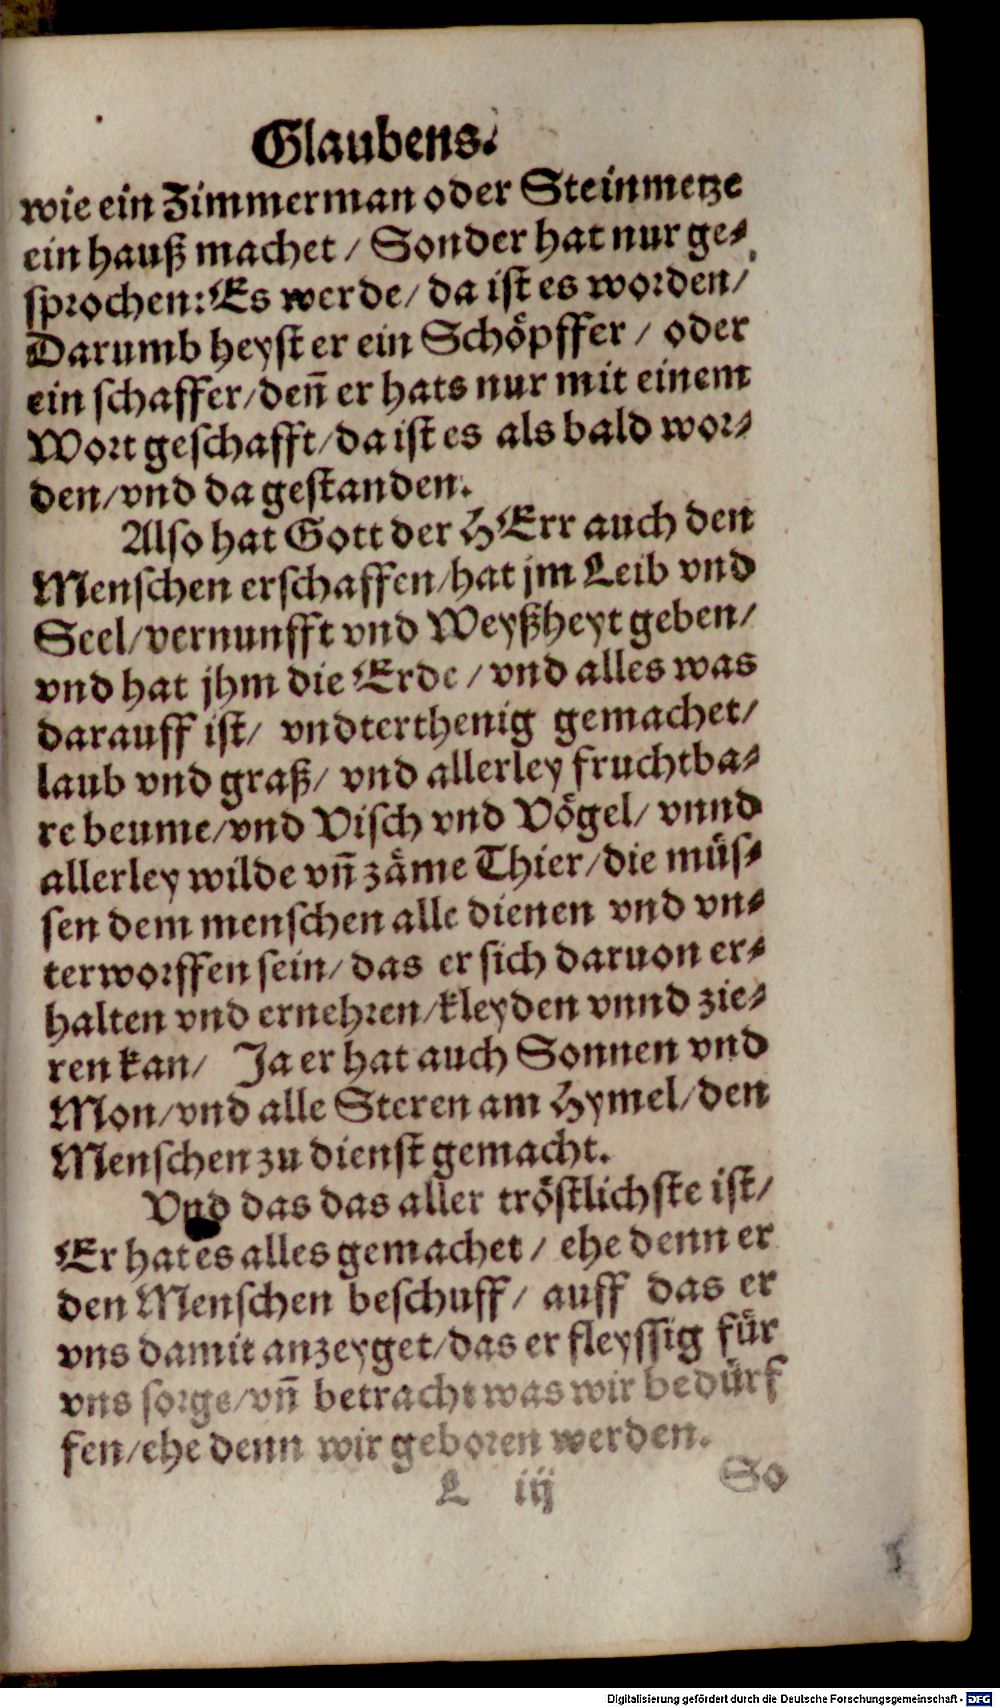 Glaubens.
wie ein Zimmerman oder Steinmetze
ein hauß machet / Sonder hat nur ge⸗
sprochen: Es werde / da ist es worden /
Darumb heyst er ein Schöpffer / oder
ein schaffer / den̄ er hats nur mit einem
Wort geschafft / da ist es als bald wor⸗
den / vnd da gestanden.
Also hat Gott der HErr auch den
Menschen erschaffen / hat jm Leib vnd
Seel / vernunfft vnd Weyßheyt geben /
vnd hat jhm die Erde / vnd alles was
darauff ist / vndterthenig gemachet /
laub vnd graß / vnd allerley fruchtba⸗
re beume / vnd Visch vnd Vögel / vnnd
allerley wilde vn̄ zäme Thier / die müs⸗
sen dem menschen alle dienen vnd vn⸗
terworffen sein / das er sich daruon er⸗
halten vnd ernehren / kleyden vnnd zie⸗
ren kan / Ja er hat auch Sonnen vnd
Mon / vnd alle Steren am Hymel / den
Menschen zu dienst gemacht.
Vnd das das aller tröstlichste ist /
Er hat es alles gemachet / ehe denn er
den Menschen beschuff / auff das er
vns damit anzeyget / das er fleyssig für
vns sorge / vn̄ betracht was wir bedürf
fen / ehe denn wir geboren werden.
L iij So
Digitalisierung gefördert durch die Deutsche Forschungsgemeinschaft - DFG